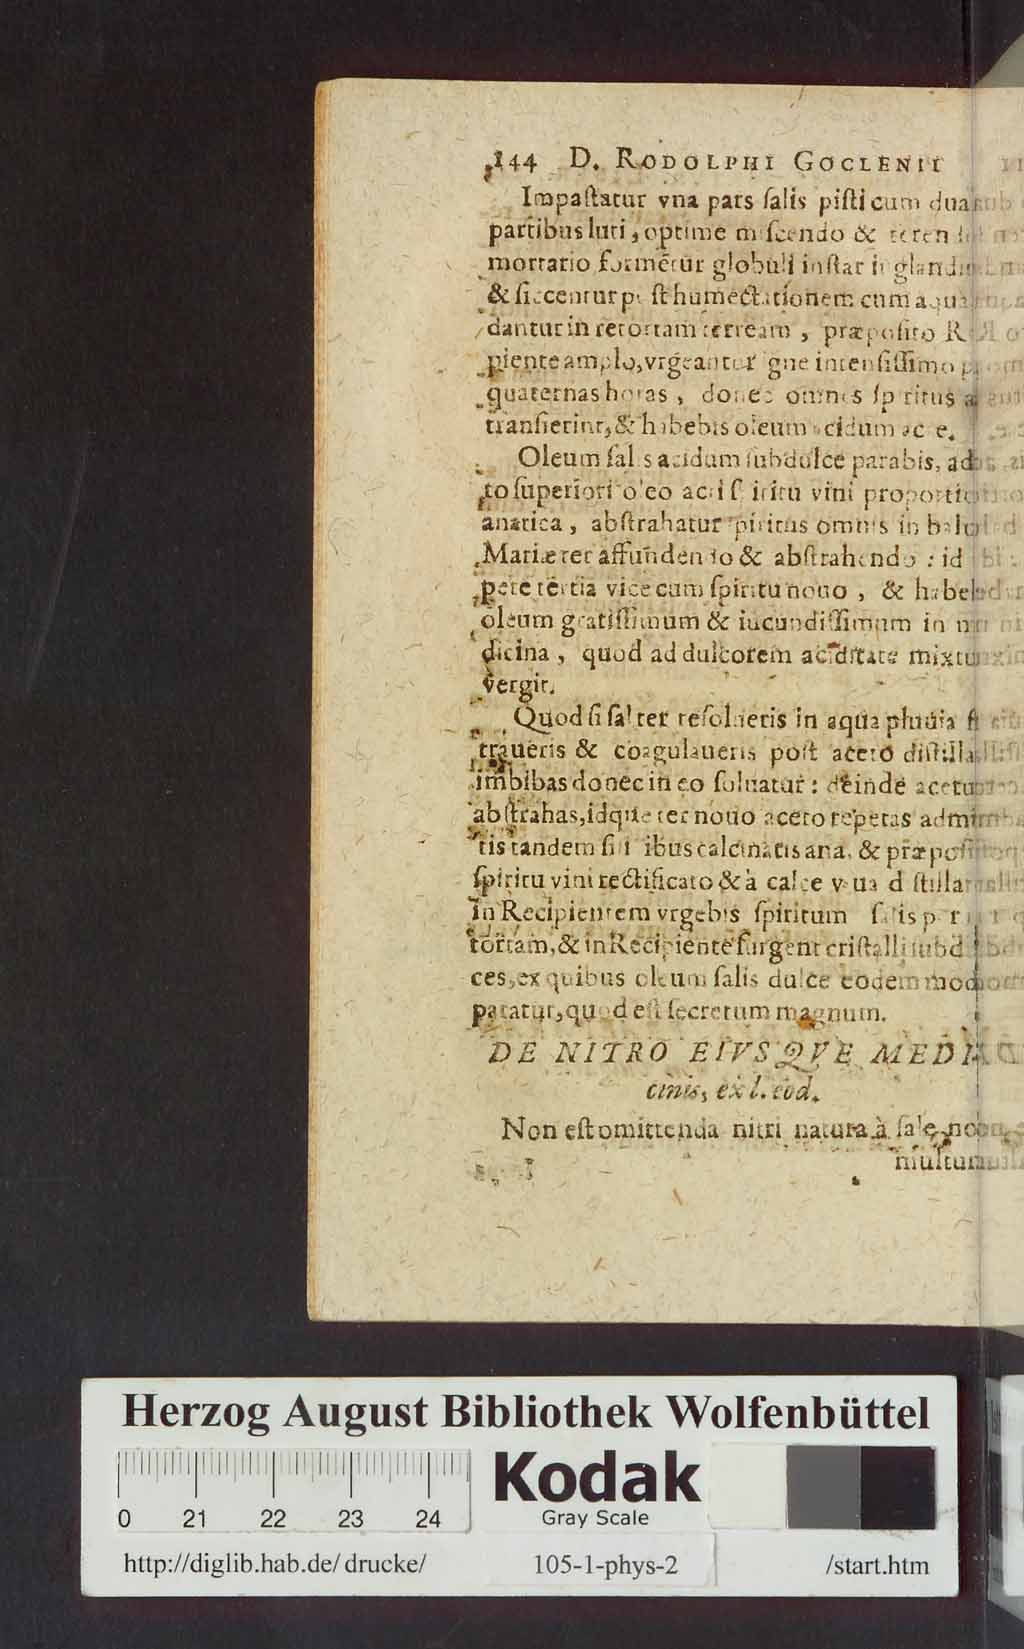 144 D. RODOLPHI GOCLENII
Impaſtatur vna pars ſalis piſti cum dua
partibus luti, optime miſcendo & teren
mortario formētūr globuli inſtar glandi
& ſiccentur poſt humectationem cum aqua
dantur in retortam terream, præpoſito R
piente amplo, vrgeantur igne intenſiſſimo p
quaternas horas, donec omnes ſpiritus a
tranſierint, & habebis oleum acidum acre.
Oleum ſalis acidum ſubdulce parabis, ad
to ſuperiori oleo acri ſpiritu vini proportio
anatica, abſtrahatur ſpiritus omnis in bal
Mariæ ter affundendo & abſtrahendo: id
pete tertia vice cum ſpiritu nouo, & habe
oleum gratiſſimum & iucundiſſimum in m
dicina, quod ad dulcorem aciditate mixtu
vergit.
Quod ſi ſal ter reſolueris in aqua pluuia fi
traueris & coagulaueris poſt aceto diſtilla
imbibas donec in eo ſoluatur: deinde acetu
abſtrahas, idque ter nouo aceto repetas admi
tis tandem ſilicibus calcinatis ana, & præpoſi
ſpiritu vini rectificato & à calce viua diſtilla
in Recipientem vrgebis ſpiritum ſalis per r
tortam, & in Recipiente ſurgent criſtalli ſubd
ces, ex quibus oleum ſalis dulce eodem mod
paratur, quod eſt ſecretum magnum.
DE NITRO EIVSQVE MEDI
cinis, ex l. eod.
Non eſt omittenda nitri natura à ſale no
multum
Herzog August Bibliothek Wolfenbüttel
Kodak
Gray Scale
0 21 22 23 24
http://diglib.hab.de/drucke/ 105-1-phys-2 /start.htm